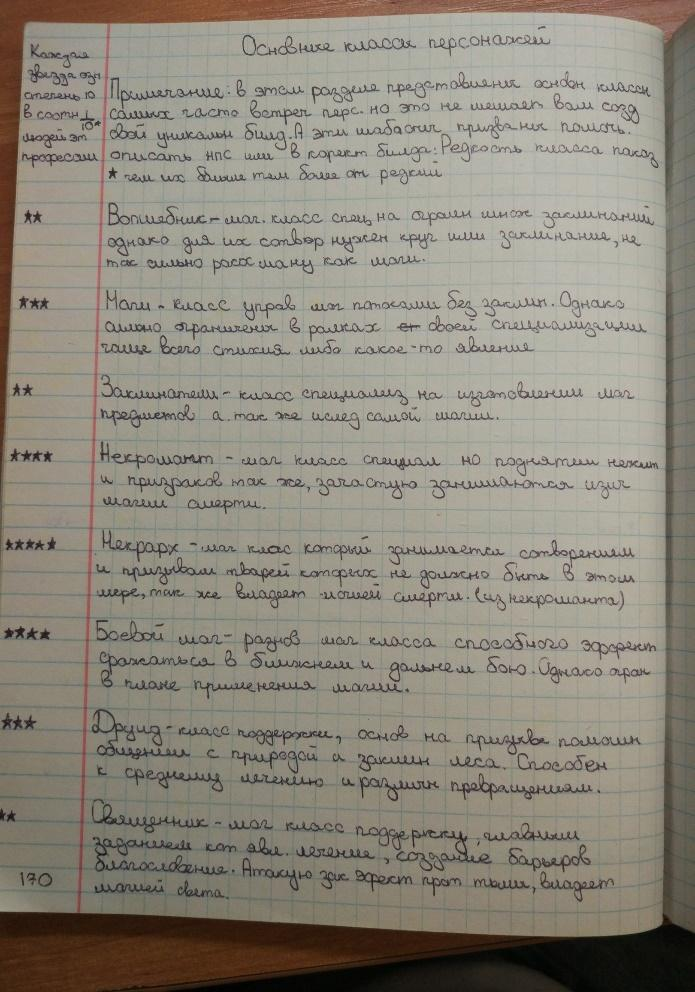 Основные классы персонажей
Каждая
звезда озн
степень 10
в соотн 1
10*
людей эт
професси
Примечание: в этом разделе представлены основн классы
самых часто встреч перс. но это не мешает вам созд
свой уникальн билд. А эти шаблоны призваны помочь.
описать нпс или в корект билда: Редкость класса показ
★ чем их больше тем более он редкий
★★
Волшебник - маг. класс спец на огромн множ заклинаний
однако для их сотвор нужен круг или заклинание, не
так сильно расх ману как маги.
★★★
Маги - класс управ маг потоками без заклин. Однако
сильно ограничены в рамках своей специализации
чаще всего стихия либо какое-то явление
★★
Заклинатели - класс специализ на изготовлении маг
предметов а так же ислед самой магии.
★★★★
Некромант - маг класс специал на поднятии нежит
и призраков так же, зачастую занимаются изуч
магии смерти.
★★★★★
Некрарх - маг клас который занимается сотворением
и призывом тварей которых не должно быть в этом
мере, так же владеет магией смерти. (из некроманта)
★★★★
Боевой маг - разнов маг класса способного эффект
сражаться в ближнем и дальнем бою. Однако огран
в плане применения магии.
★★★
Друид - класс поддержки, основ на призыве помощн
общении с природой и заклин леса. Способен
к среднему лечению и различн превращениям.
★★
Священник - маг класс поддержку, главным
заданием кот явл. лечение, создание барьеров
благословение. Атакую зак эфект прот тьмы, владеет
магией света.
170